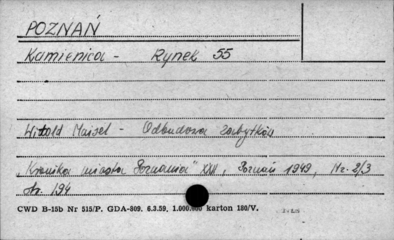 POZNAŃ
Kamienica - Rynek 55
Witold Maisel - Odbudowa zabytków
„Kronika miasta Poznania" XXII, Poznań 1949, Nr. 2/3
str. 194
CWD B-15b Nr 515/P. GDA-809. 6.3.59. 1.000.000 karton 180/V.